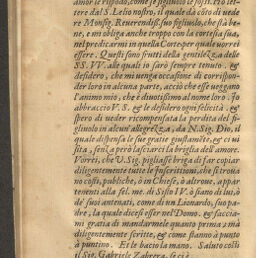 amor le rispodo, come se figliuolo le fossi. Ho let-
tere dal S. Lelio nostro, il quale dà cõto di vede
re Monsig. Reverendiss. suo figliuolo, che stà be
ne, e mi obliga anche troppo con la cortesia sua,
nel predicarmi in quella Corte per quale vorrei
essere. Questi sono frutti della gentilezza delle
SS. VV. alle quali io sarò sempre tenuto, &
desidero, che mi venga occasione di corrispon-
der loro in alcuna parte, acciò che esse veggano
l'animo mio, che è divotissimo al nome loro. Io
abbraccio V. S. & le desidero ogni felicità, &
spero di veder ricompensata la perdita del fi-
gliuolo in alcun' allegrezza, da N. Sig. Dio, il
quale dispensa le sue gratie giustamẽte, & ci vi
sita, senza però lasciarci la briglia dell' amore.
Vorrei, che V. Sig. pigliasse briga di far copiar
diligentemente tutte le Inscrittioni, che si trova
no costì, publiche, ò in Chiese, ò altrove, appar-
tenenti alla fel. me. di Sisto IV. ò siano di lui, ò
de' suoi antenati, come di un Lionardo, suo pa-
dre, la quale dicesi esser nel Domo. & faccia-
mi gratia di mandarmele quanto prima
diligentemente scritte, & come stanno à punto
à puntino. Et le bacio la mano. Saluto costì
il Sig. Gabriele